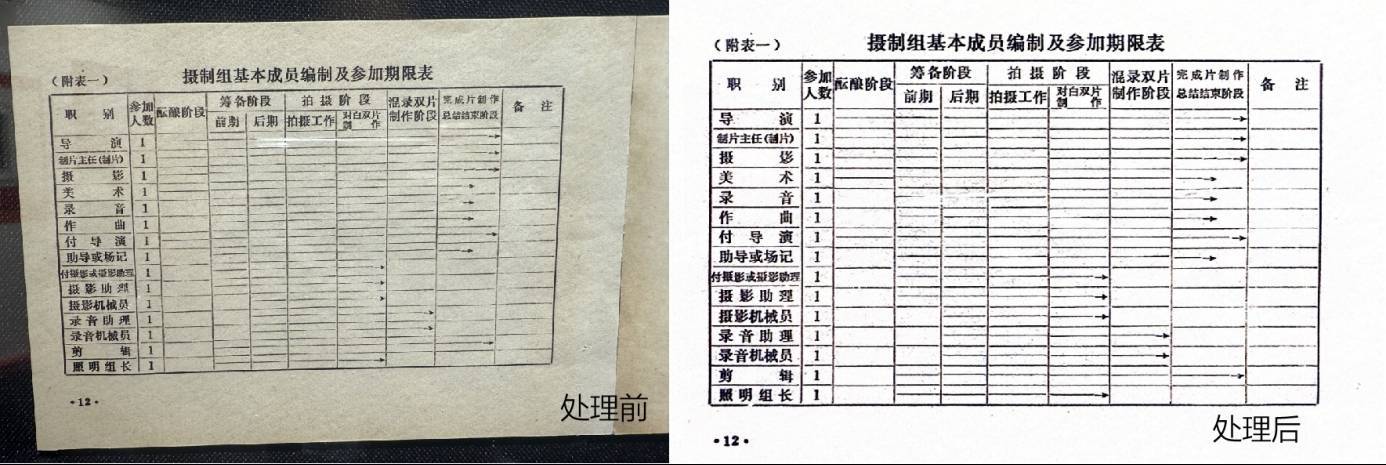 （附表一）
摄制组基本成员编制及参加期限表
职 别 参加人数 酝酿阶段 筹备阶段 拍摄阶段 混录双片制作阶段 完成片制作总结结束阶段 备 注
前期 后期 拍摄工作 对白双片制作
导 演 1
制片主任(制片) 1
摄 影 1
美 术 1
录 音 1
作 曲 1
付 导 演 1
助导或场记 1
付摄影或摄影助理 1
摄影助理 1
摄影机械员 1
录音助理 1
录音机械员 1
剪 辑 1
照明组长 1
·12·
处理前
（附表一）
摄制组基本成员编制及参加期限表
职 别 参加人数 酝酿阶段 筹备阶段 拍摄阶段 混录双片制作阶段 完成片制作总结结束阶段 备 注
前期 后期 拍摄工作 对白双片制作
导 演 1
制片主任(制片) 1
摄 影 1
美 术 1
录 音 1
作 曲 1
付 导 演 1
助导或场记 1
付摄影或摄影助理 1
摄影助理 1
摄影机械员 1
录音助理 1
录音机械员 1
剪 辑 1
照明组长 1
·12·
处理后